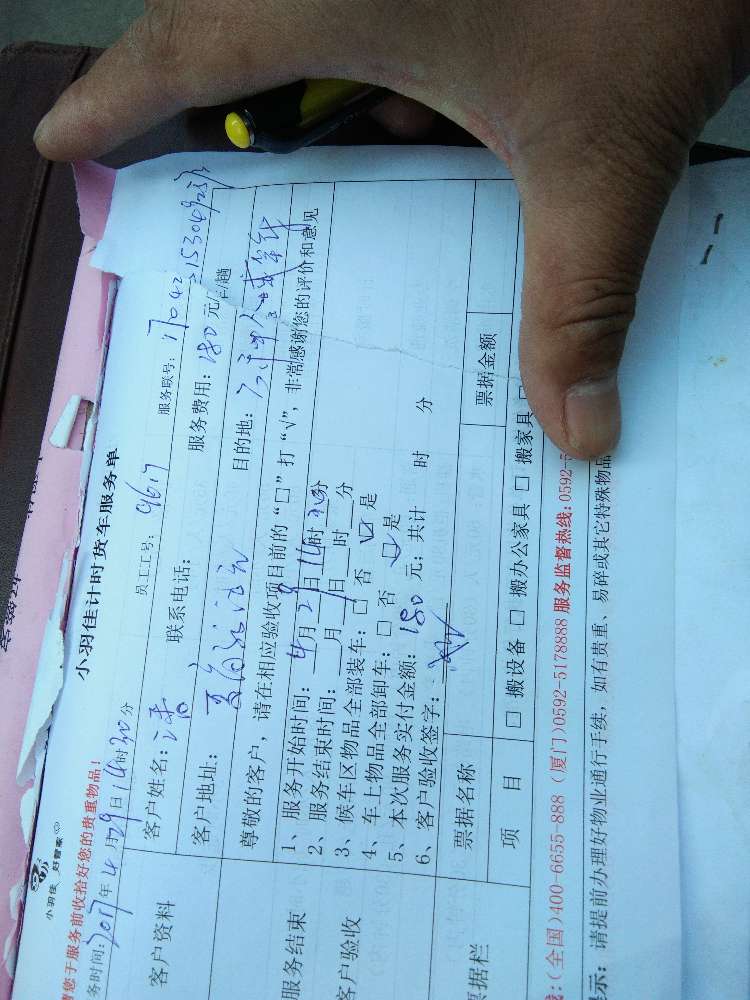 小羽佳 好管家
小羽佳计时货车服务单
请您于服务前收拾好您的贵重物品!
务时间:2017年4月29日14时30分 员工工号: 4617 服务联号: 17042
客户资料
客户姓名: 联系电话: 15304925
服务费用: 180 元/ /趟
客户地址: 目的地:
尊敬的客户,请在相应验收项目前的“□”打“√”,非常感谢您的评价和意见
服务结束
客户验收
1、服务开始时间: 4月29日14时30分
2、服务结束时间: 月 日 时 分
3、候车区物品全部装车: □ 否 ☑ 是
4、车上物品全部卸车: □ 否 ☑ 是
5、本次服务实付金额: 180 元; 共计 时 分
6、客户验收签字:
票据栏
票据名称 票据金额
项 目 □ 搬设备 □ 搬办公家具 □ 搬家具 □
线:(全国)400-6655-888 (厦门)0592-5178888 服务监督热线:0592-5
示: 请提前办理好物业通行手续, 如有贵重、易碎或其它特殊物品